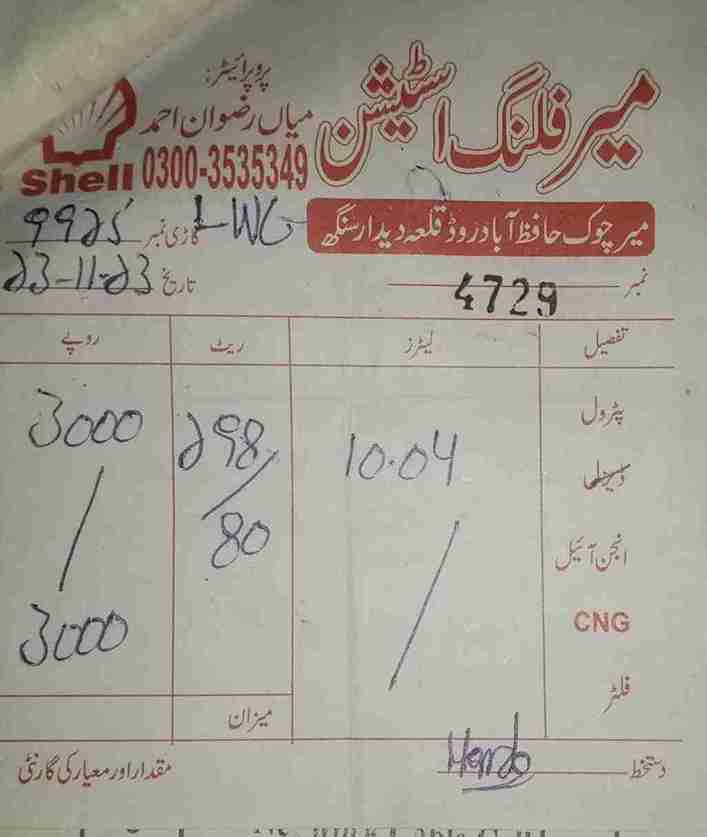 میر فلنگ اسٹیشن
پروپرائیٹر:
میاں رضوان احمد
Shell 0300-3535349
میر چوک حافظ آباد روڈ قلعہ دیدار سنگھ
گاڑی نمبر LWG 9925
نمبر 4729
تاریخ 23-11-23
تفصیل لیٹرز ریٹ روپے
پٹرول 10.04 298/80 3000
ڈیزل
انجن آئیل
CNG 3000
فلٹر
میزان
دستخط
مقدار اور معیار کی گارنٹی